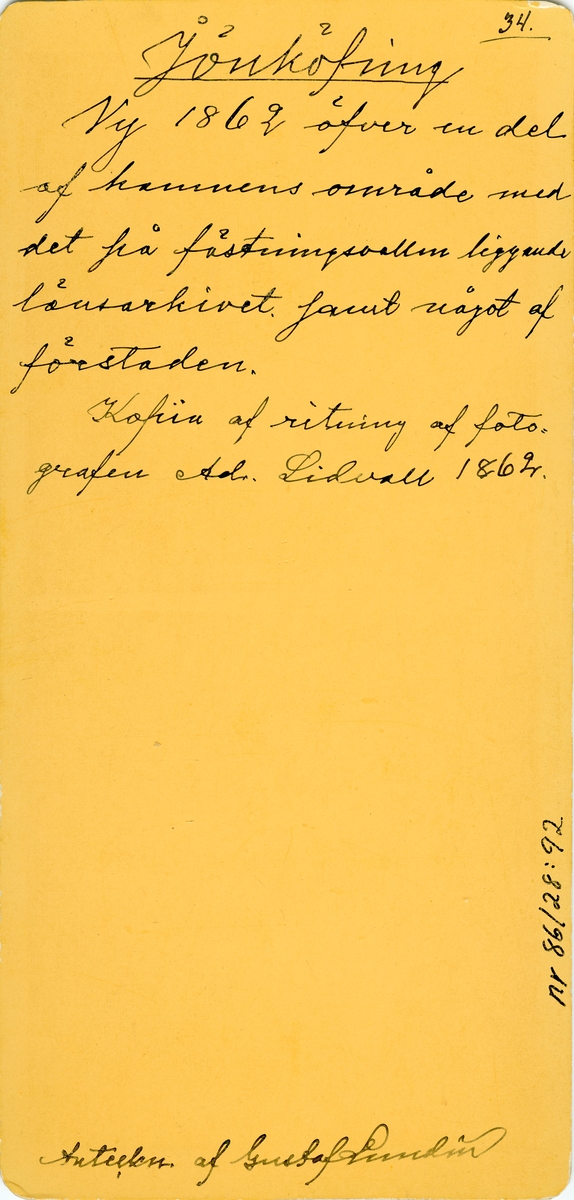 34.
Jönköping
Vy 1862 öfver en del
af hamnens område med
det på fästningsvallen liggande
länsarkivet. samt något af
förstaden.
Kopia af ritning af foto=
grafen Ad. Lidvall 1862.
nr 86/28:92
Anteckn. af Gustaf Lundin